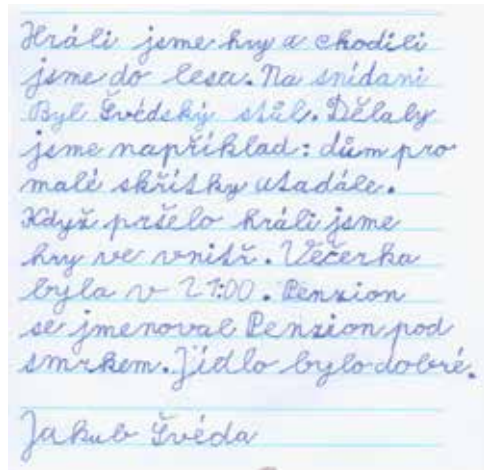 Hráli jsme hry a chodili
jsme do lesa. Na snídani
Byl Švédský stůl. Dělaly
jsme například: dům pro
malé skřítky atadále.
Když pršelo hráli jsme
hry ve vnitř. Večerka
byla v 21:00. Penzion
se jmenoval Penzion pod
smrkem. Jídlo bylo dobré.
Jakub Švéda